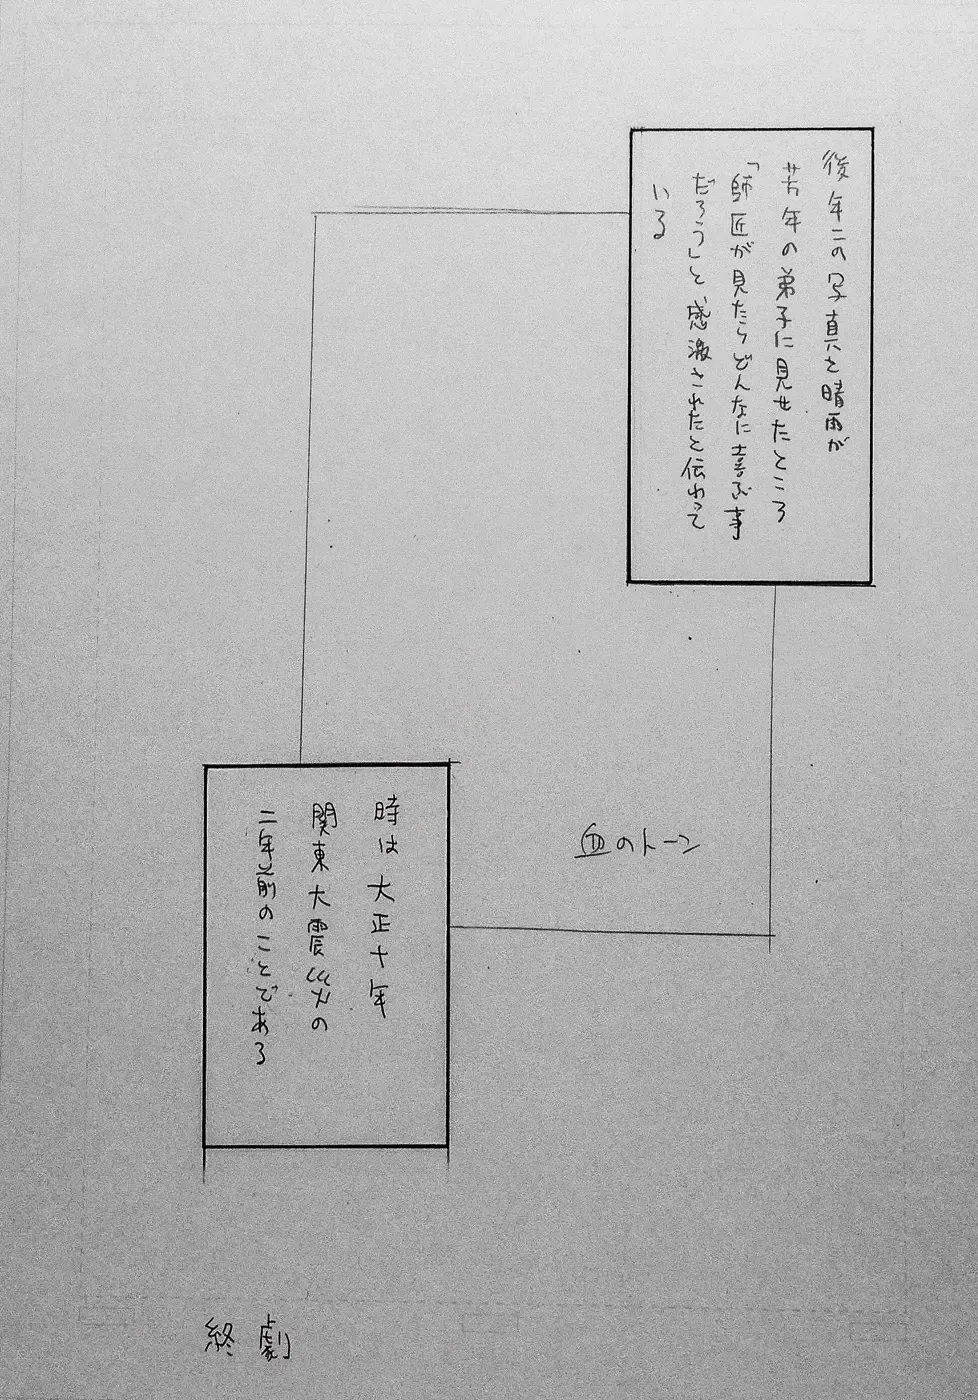 後年この写真を晴雨が
芳年の弟子に見せたところ
「師匠が見たらどんなに喜ぶ事
だろう」と、感激されたと伝わって
いる
血のトーン
時は大正十年
関東大震災の
二年前のことである
終劇